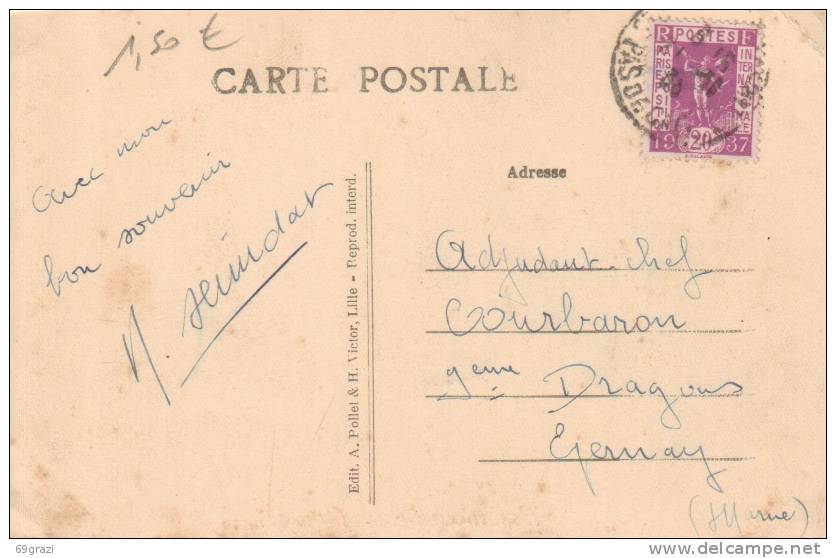 1,50 €
CARTE POSTALE
RF
POSTES
PARIS EXPOSITION
INTERNATIONALE
1937
20
Adresse
avec mon
bon souvenir
Edit. A. Pollet & H. Victor, Lille - Reprod. interd.
Adjudant-chef
Courbaron
9eme Dragons
Epernay
(Marne)
69grazi
delcampe.net